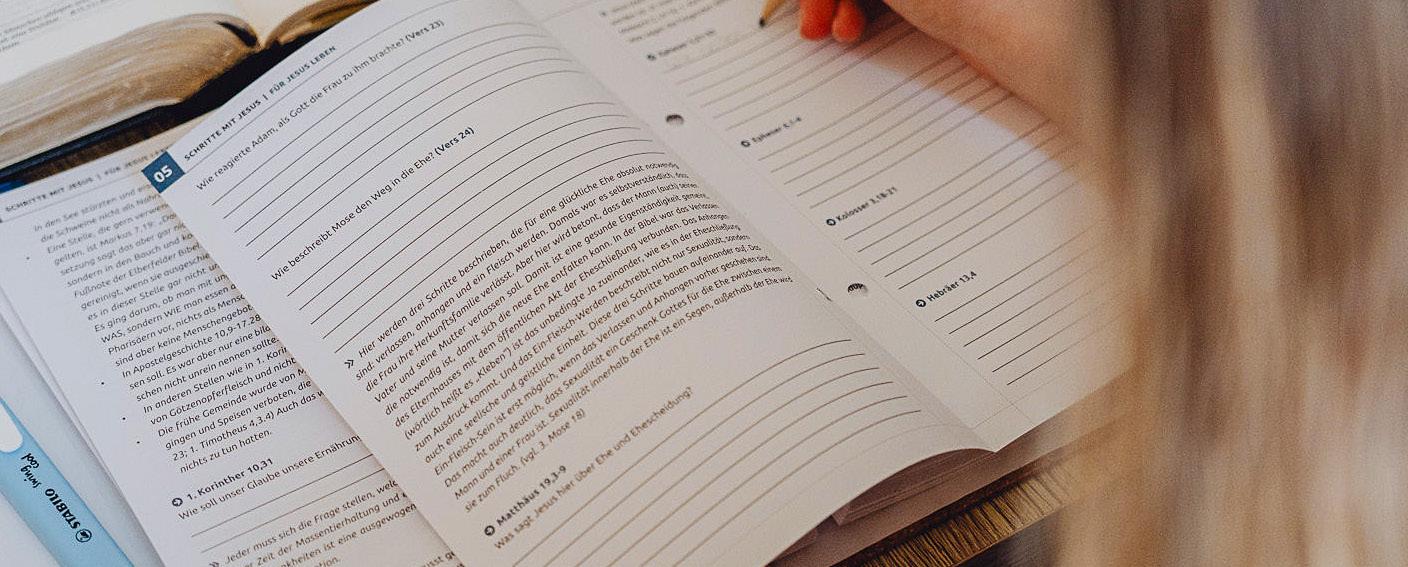 SCHRITTE MIT JESUS | FÜR JESUS
In den See stürzten und
die Schweine nicht als
Eine Stelle, die gern
gelten, ist Markus 7,19:
setzung sagt das aber gar
sondern in den Bauch und
Fußnote der Elberfelder
gereinigt, wenn sie
es in dieser Stelle gar nicht
Es ging darum, ob man mit
WAS, sondern WIE man essen
Pharisäern vor, nichts als
sind aber keine Menschengebot
In Apostelgeschichte 10,9-17.28
sen soll. Es war aber nur eine
schen nicht unrein nennen sollte
In anderen Stellen wie in 1.
von Götzenopferfleisch und nicht
Die frühe Gemeinde wurde von
gingen und Speisen verboten, die
23; 1. Timotheus 4,3.4) Auch das
nichts zu tun hatten.
1. Korinther 10,31
Wie soll unser Glaube unsere
Jeder muss sich die Frage stellen,
er Zeit der Massentierhaltung und
nkheiten ist eine ausgewogen
STABILO swing cool
05 SCHRITTE MIT JESUS | FÜR JESUS LEBEN
Wie reagierte Adam, als Gott die Frau zu ihm brachte? (Vers 23)
Wie beschreibt Mose den Weg in die Ehe? (Vers 24)
» Hier werden drei Schritte beschrieben, die für eine glückliche Ehe absolut notwendig
sind: verlassen, anhangen und ein Fleisch werden. Damals war es selbstverständlich, dass
die Frau ihre Herkunftsfamilie verlässt. Aber hier wird betont, dass der Mann (auch) seinen
Vater und seine Mutter verlassen soll. Damit ist eine gesunde Eigenständigkeit gemeint,
die notwendig ist, damit sich die neue Ehe entfalten kann. In der Bibel war das Verlassen
des Elternhauses mit dem öffentlichen Akt der Eheschließung verbunden. Das Anhangen
(wörtlich heißt es „Kleben“) ist das unbedingte Ja zueinander, wie es in der Eheschließung
zum Ausdruck kommt. Und das Ein-Fleisch-Werden beschreibt nicht nur Sexualität, sondern
auch eine seelische und geistliche Einheit. Diese drei Schritte bauen aufeinander auf. Das
Ein-Fleisch-Sein ist erst möglich, wenn das Verlassen und Anhangen vorher geschehen sind.
Das macht auch deutlich, dass Sexualität ein Geschenk Gottes für die Ehe zwischen einem
Mann und einer Frau ist. Sexualität innerhalb der Ehe ist ein Segen, außerhalb der Ehe wird
sie zum Fluch. (vgl. 3. Mose 18)
Matthäus 19,3-9
Was sagt Jesus hier über Ehe und Ehescheidung?
Epheser 6,1-4
Kolosser 3,18-21
Hebräer 13,4